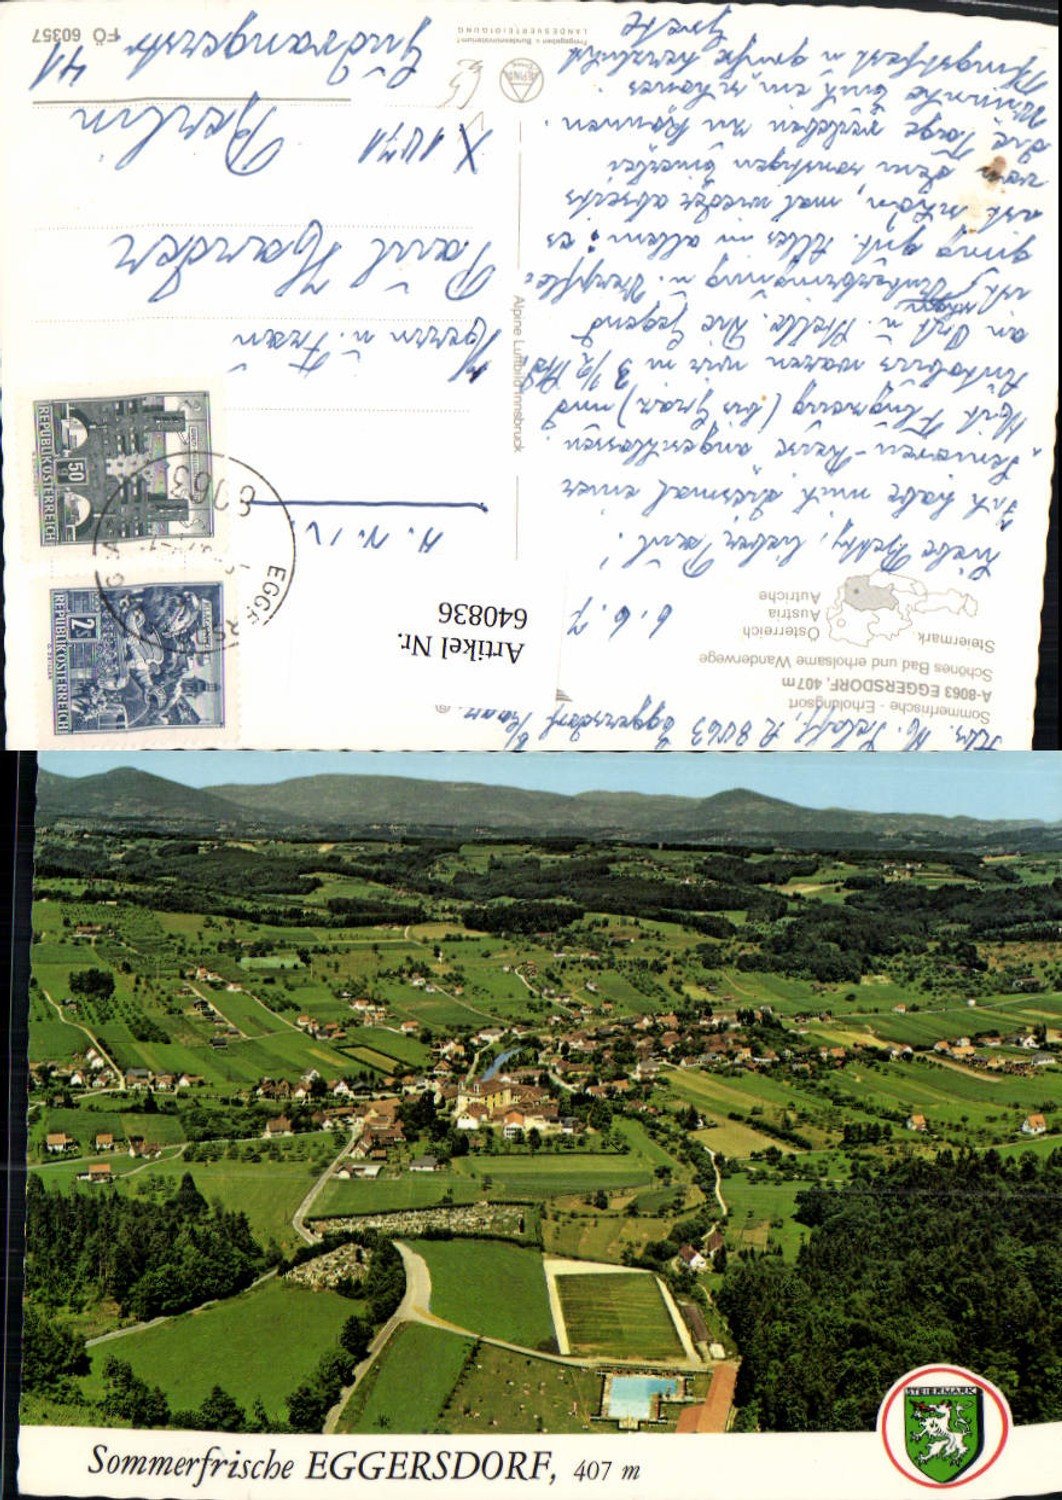 Adr. H. A 8063 Eggersdorf b/
Sommerfrische - Erholungsort
A-8063 EGGERSDORF, 407m
Schönes Bad und erholsame Wanderwege
Steiermark
Österreich
Austria
Autriche
6.6.7
Liebe Betty, lieber Paul!
Ich habe mich diesmal einer
"Senioren-Reise" angeschlossen.
Mit Flugzeug (bis Graz) und
Autobus waren wir in 3 1/2 Std
am Ort u. Stelle. Die Gegend
ist schön Unterbringung u. Verpfle-
gung gut. Alles in allem: es
ist schön, mal wieder abseits
von dem sonstigen Einerlei
die Tage verleben zu können.
Wünsche Euch ein schönes
Pfingstfest u. grüße herzlichst
Grete
Alpine Luftbild Innsbruck
Artikel Nr.
640836
Herrn u. Frau
Paul
X 1071 Berlin
Gudvangerstr 41
ALPINE
Freigegeben v. Bundesministerium f.
LANDESVERTEIDIGUNG
FÖ 60357
REPUBLIK ÖSTERREICH
50
REPUBLIK ÖSTERREICH
2 S
8063
EGGERSD
STEIERMARK
Sommerfrische EGGERSDORF, 407 m